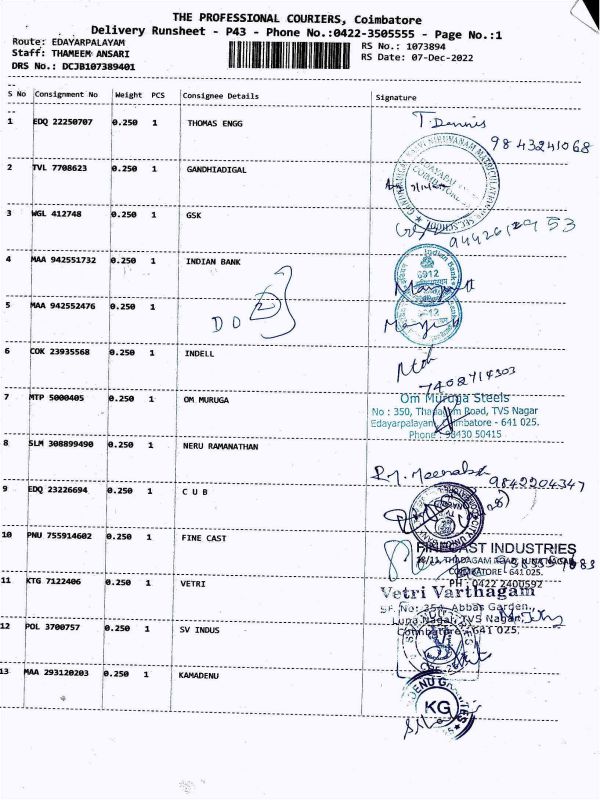 THE PROFESSIONAL COURIERS, Coimbatore
Delivery Runsheet - P43 - Phone No.:0422-3505555 - Page No.:1
Route: EDAYARPALAYAM RS No.: 1073894
Staff: THAMEEM ANSARI RS Date: 07-Dec-2022
DRS No.: DCJB107389401
S No Consignment No Weight PCS Consignee Details Signature
1 EDQ 22250707 0.250 1 THOMAS ENGG T Dennis
9843241068
2 TVL 7708623 0.250 1 GANDHIADIGAL
3 WGL 412748 0.250 1 GSK
4 MAA 942551732 0.250 1 INDIAN BANK
Indian Bank
5 MAA 942552476 0.250 1
D D 2
6 COK 23935568 0.250 1 INDELL
7402714303
7 MTP 5000405 0.250 1 OM MURUGA
Om Muruga Steels
No : 350, Thadagam Road, TVS Nagar
Edayarpalayam, Coimbatore - 641 025.
Phone : 98430 50415
8 SLM 308899490 0.250 1 NERU RAMANATHAN
9842204347
9 EDQ 23226694 0.250 1 C U B
10 PNU 755914602 0.250 1 FINE CAST
FINECAST INDUSTRIES
THADAGAM ROAD, LUNA NAGAR
COIMBATORE - 641 025.
PH : 0422 2400592
11 KTG 7122406 0.250 1 VETRI
Vetri Varthagam
SF. No: 354, Abbas Garden,
Luna Nagar, TVS Nagar,
Coimbatore - 641 025.
12 POL 3700757 0.250 1 SV INDUS
13 MAA 293120203 0.250 1 KAMADENU
KG